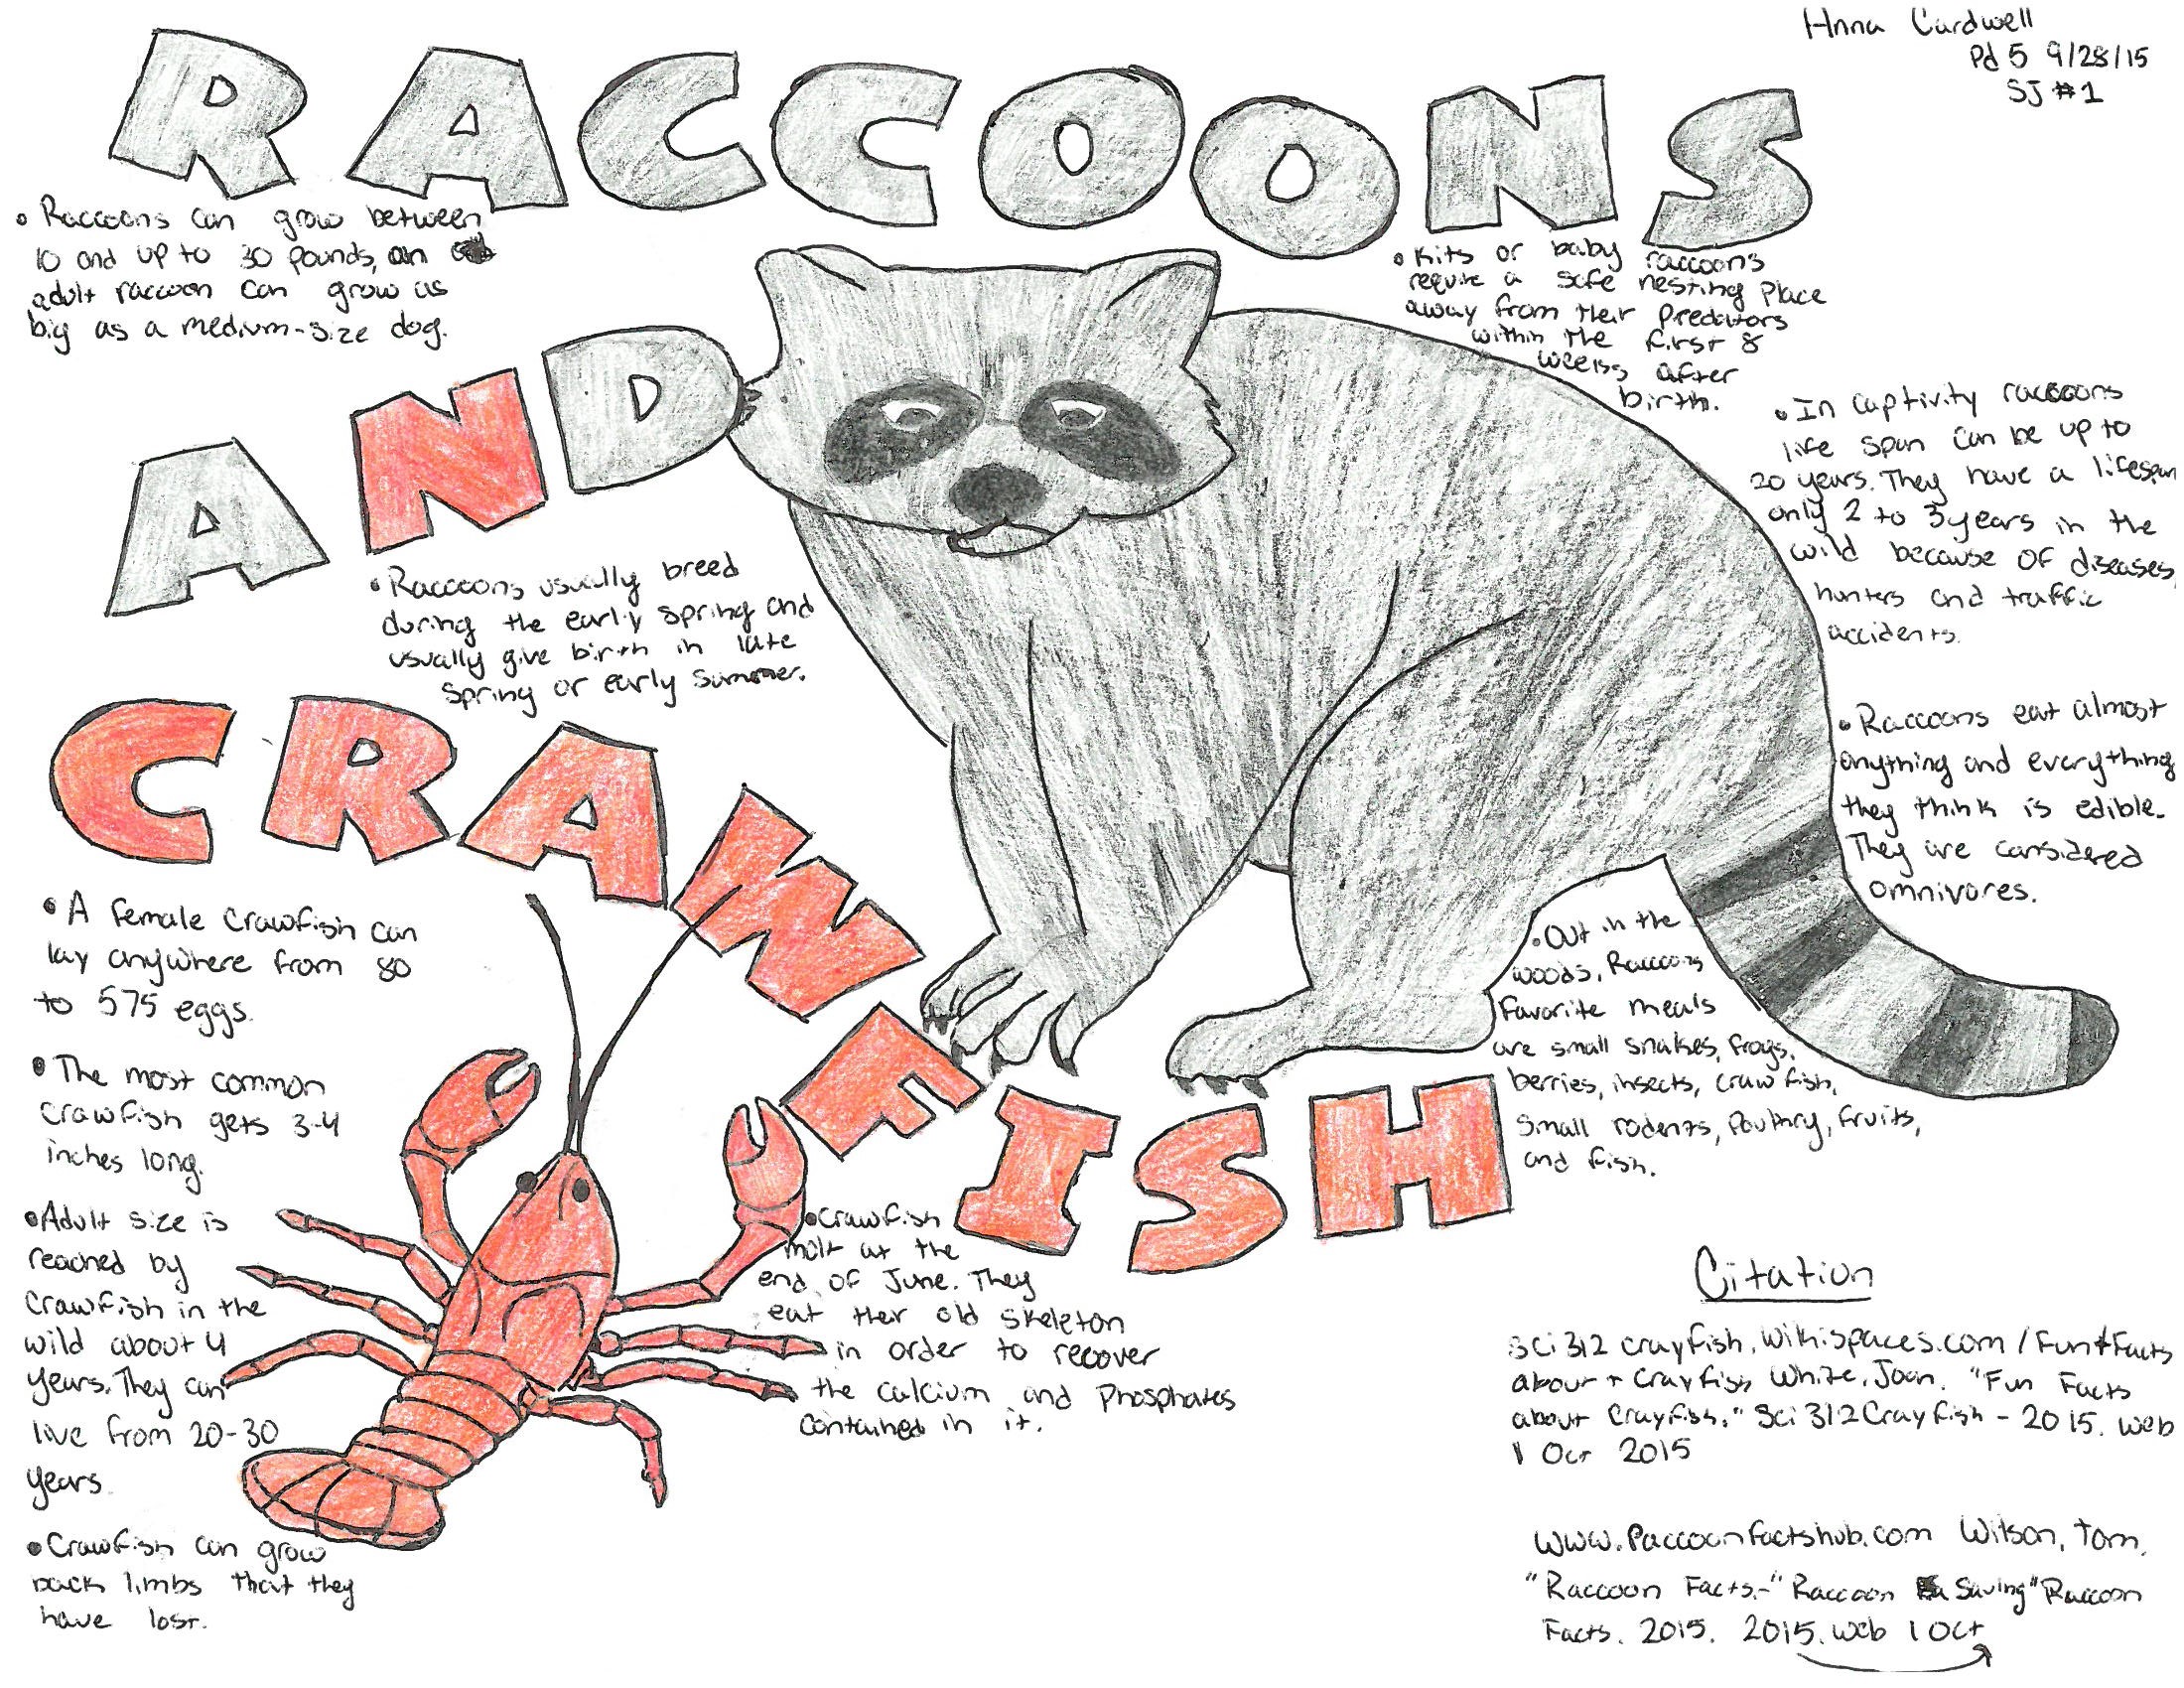 Anna Cardwell
Pd 5 9/28/15
SJ #1
RACCOONS
AND
CRAWFISH
• Raccoons can grow between
10 and up to 30 pounds, an
adult raccoon can grow as
big as a medium-size dog.
• Kits or baby raccoons
require a safe nesting place
away from their predators
within the first 8
weeks after
birth.
• In captivity raccoons
life span can be up to
20 years. They have a lifespan
only 2 to 3 years in the
wild because of diseases,
hunters and traffic
accidents.
• Raccoons usually breed
during the early spring and
usually give birth in late
spring or early summer.
• Raccoons eat almost
anything and everything
they think is edible.
They are considered
omnivores.
• Out in the
woods, Raccoons
favorite meals
are small snakes, frogs,
berries, insects, crawfish,
small rodents, poultry, fruits,
and fish.
• A female crawfish can
lay anywhere from 80
to 575 eggs.
• The most common
crawfish gets 3-4
inches long.
• Adult size is
reached by
crawfish in the
wild about 4
years. They can
live from 20-30
years.
• Crawfish can grow
back limbs that they
have lost.
• Crawfish
molt at the
end of June. They
eat their old skeleton
in order to recover
the calcium and phosphates
contained in it.
Citation
sci312crayfish.wikispaces.com/Fun+Facts
about+Crayfish White, Joan. "Fun Facts
about Crayfish." Sci312Crayfish - 2015. Web
1 Oct 2015
www.Raccoonfactshub.com Wilson, Tom.
"Raccoon Facts-" Raccoon Saving" Raccoon
Facts. 2015. 2015. Web 1 Oct